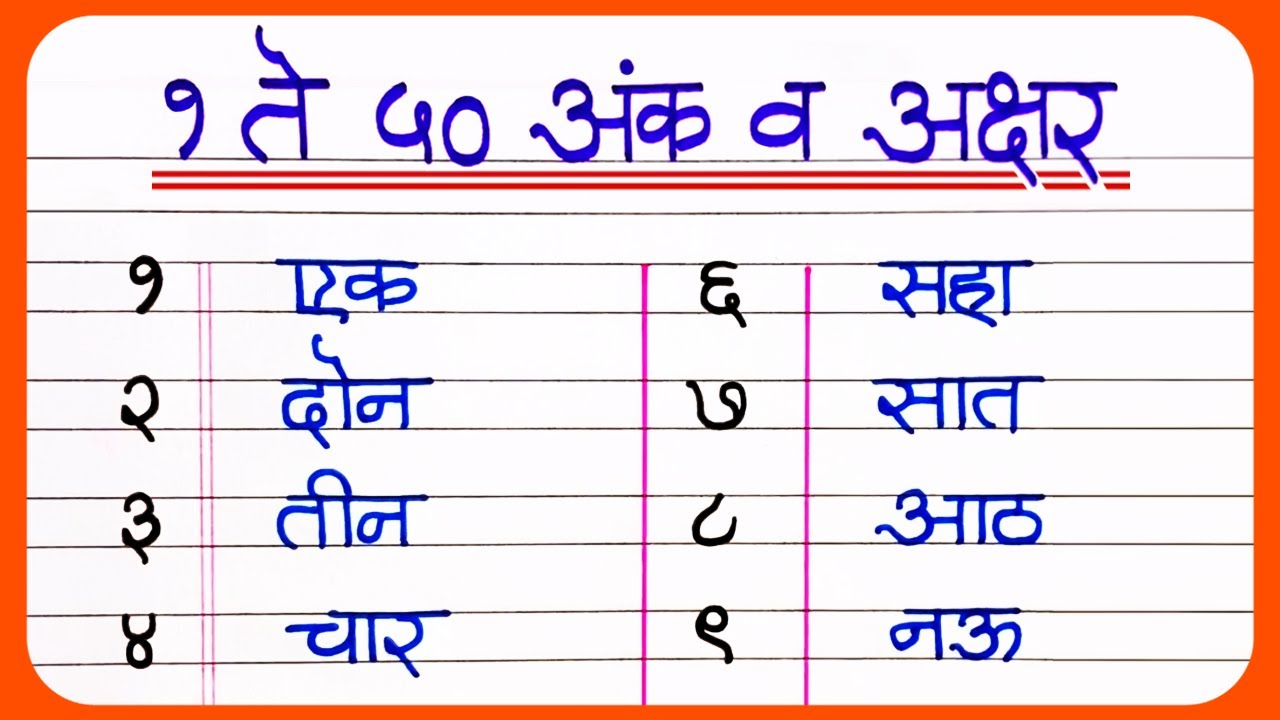 १ ते ५० अंक व अक्षर
१ एक ६ सहा
२ दोन ७ सात
३ तीन ८ आठ
४ चार ९ नऊ